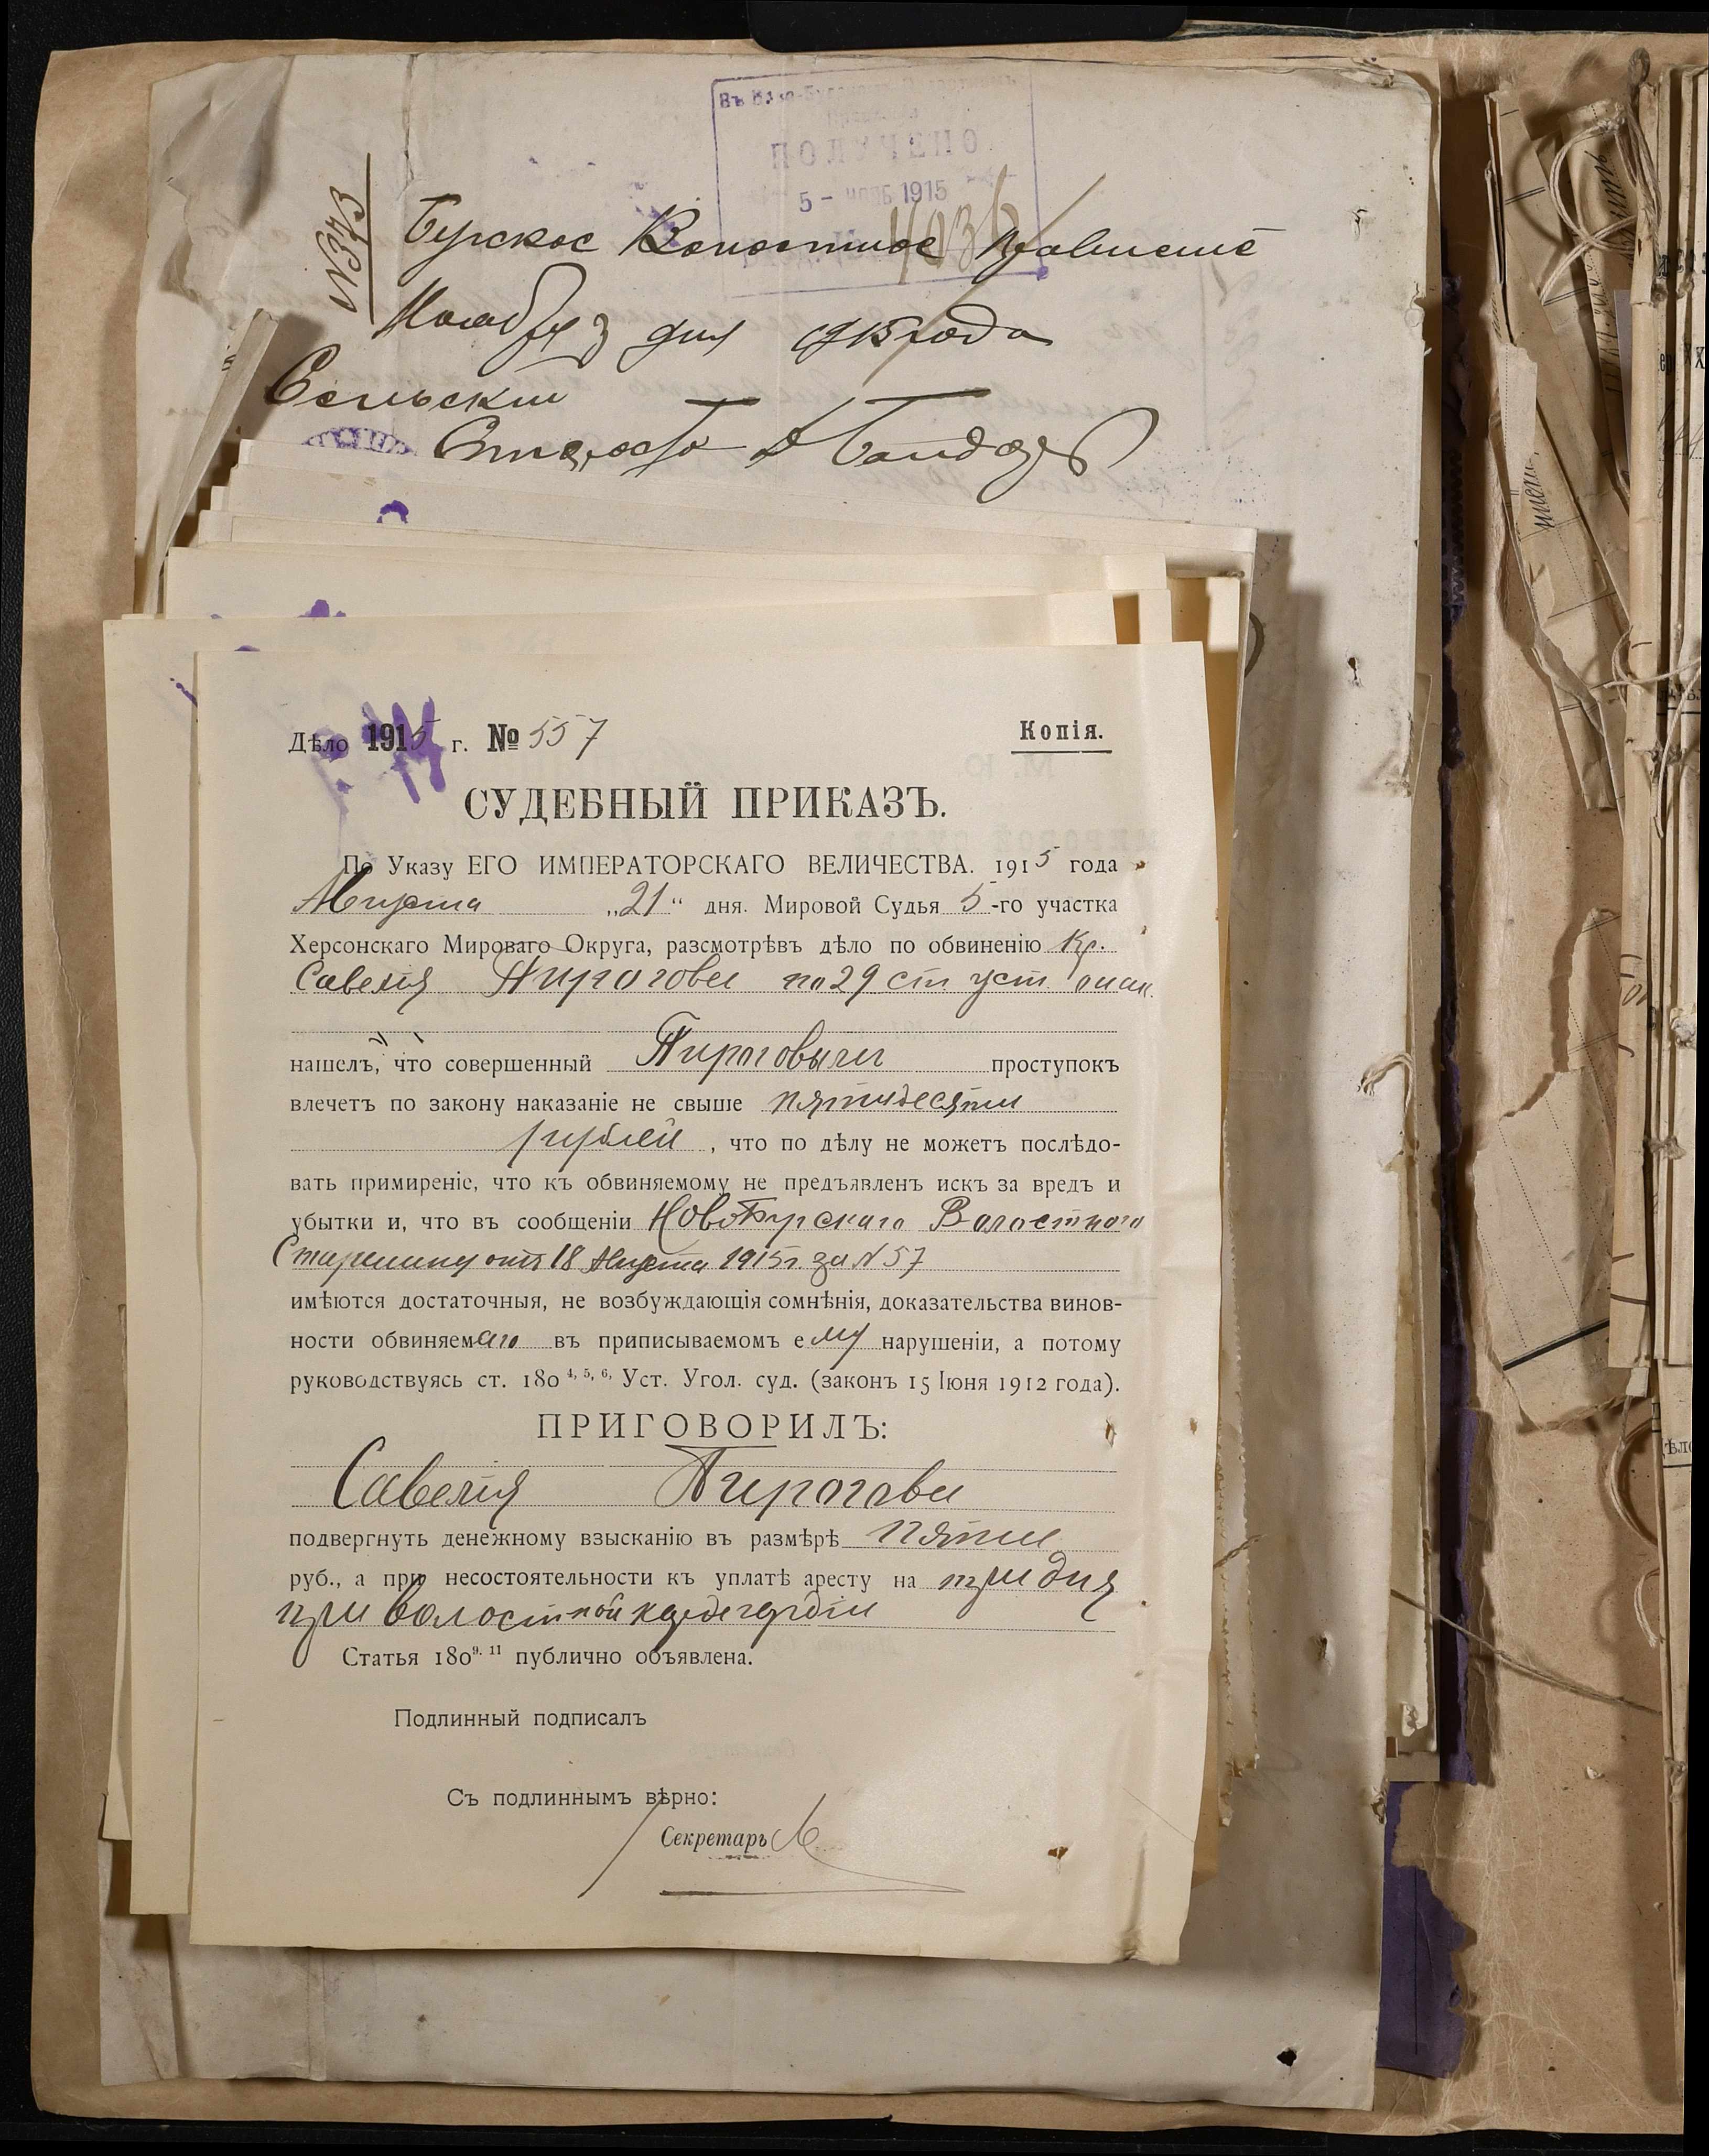 ПОЛУЧЕНО
5 - НОЯБ 1915
№373
Бурское Волостное Правление
Ноября 3 дня 1915 года
Сельский
Староста
Дѣло 1915 г. № 557
Копія.
СУДЕБНЫЙ ПРИКАЗЪ.
По Указу ЕГО ИМПЕРАТОРСКАГО ВЕЛИЧЕСТВА. 1915 года
Августа „21“ дня. Мировой Судья 5-го участка
Херсонскаго Мироваго Округа, разсмотрѣвъ дѣло по обвиненію Кр.
Савелія Пирогова по 29 ст уст о нак.
нашелъ, что совершенный Пироговым проступокъ
влечетъ по закону наказаніе не свыше пятидесяти
рублей, что по дѣлу не можетъ послѣдо-
вать примиреніе, что къ обвиняемому не предъявленъ искъ за вредъ и
убытки и, что въ сообщеніи НовоБурскаго Волостного
Старшины отъ 18 Августа 1915 г. за № 57
имѣются достаточныя, не возбуждающія сомнѣнія, доказательства винов-
ности обвиняемаго въ приписываемомъ ему нарушеніи, а потому
руководствуясь ст. 180 4, 5, 6, Уст. Угол. суд. (законъ 15 Іюня 1912 года).
ПРИГОВОРИЛЪ:
Савелія Пирогова
подвергнуть денежному взысканію въ размѣрѣ пяти
руб., а при несостоятельности къ уплатѣ аресту на три дня
при волостной кордегардіи
Статья 180 9. 11 публично объявлена.
Подлинный подписалъ
Съ подлиннымъ вѣрно:
Секретарь